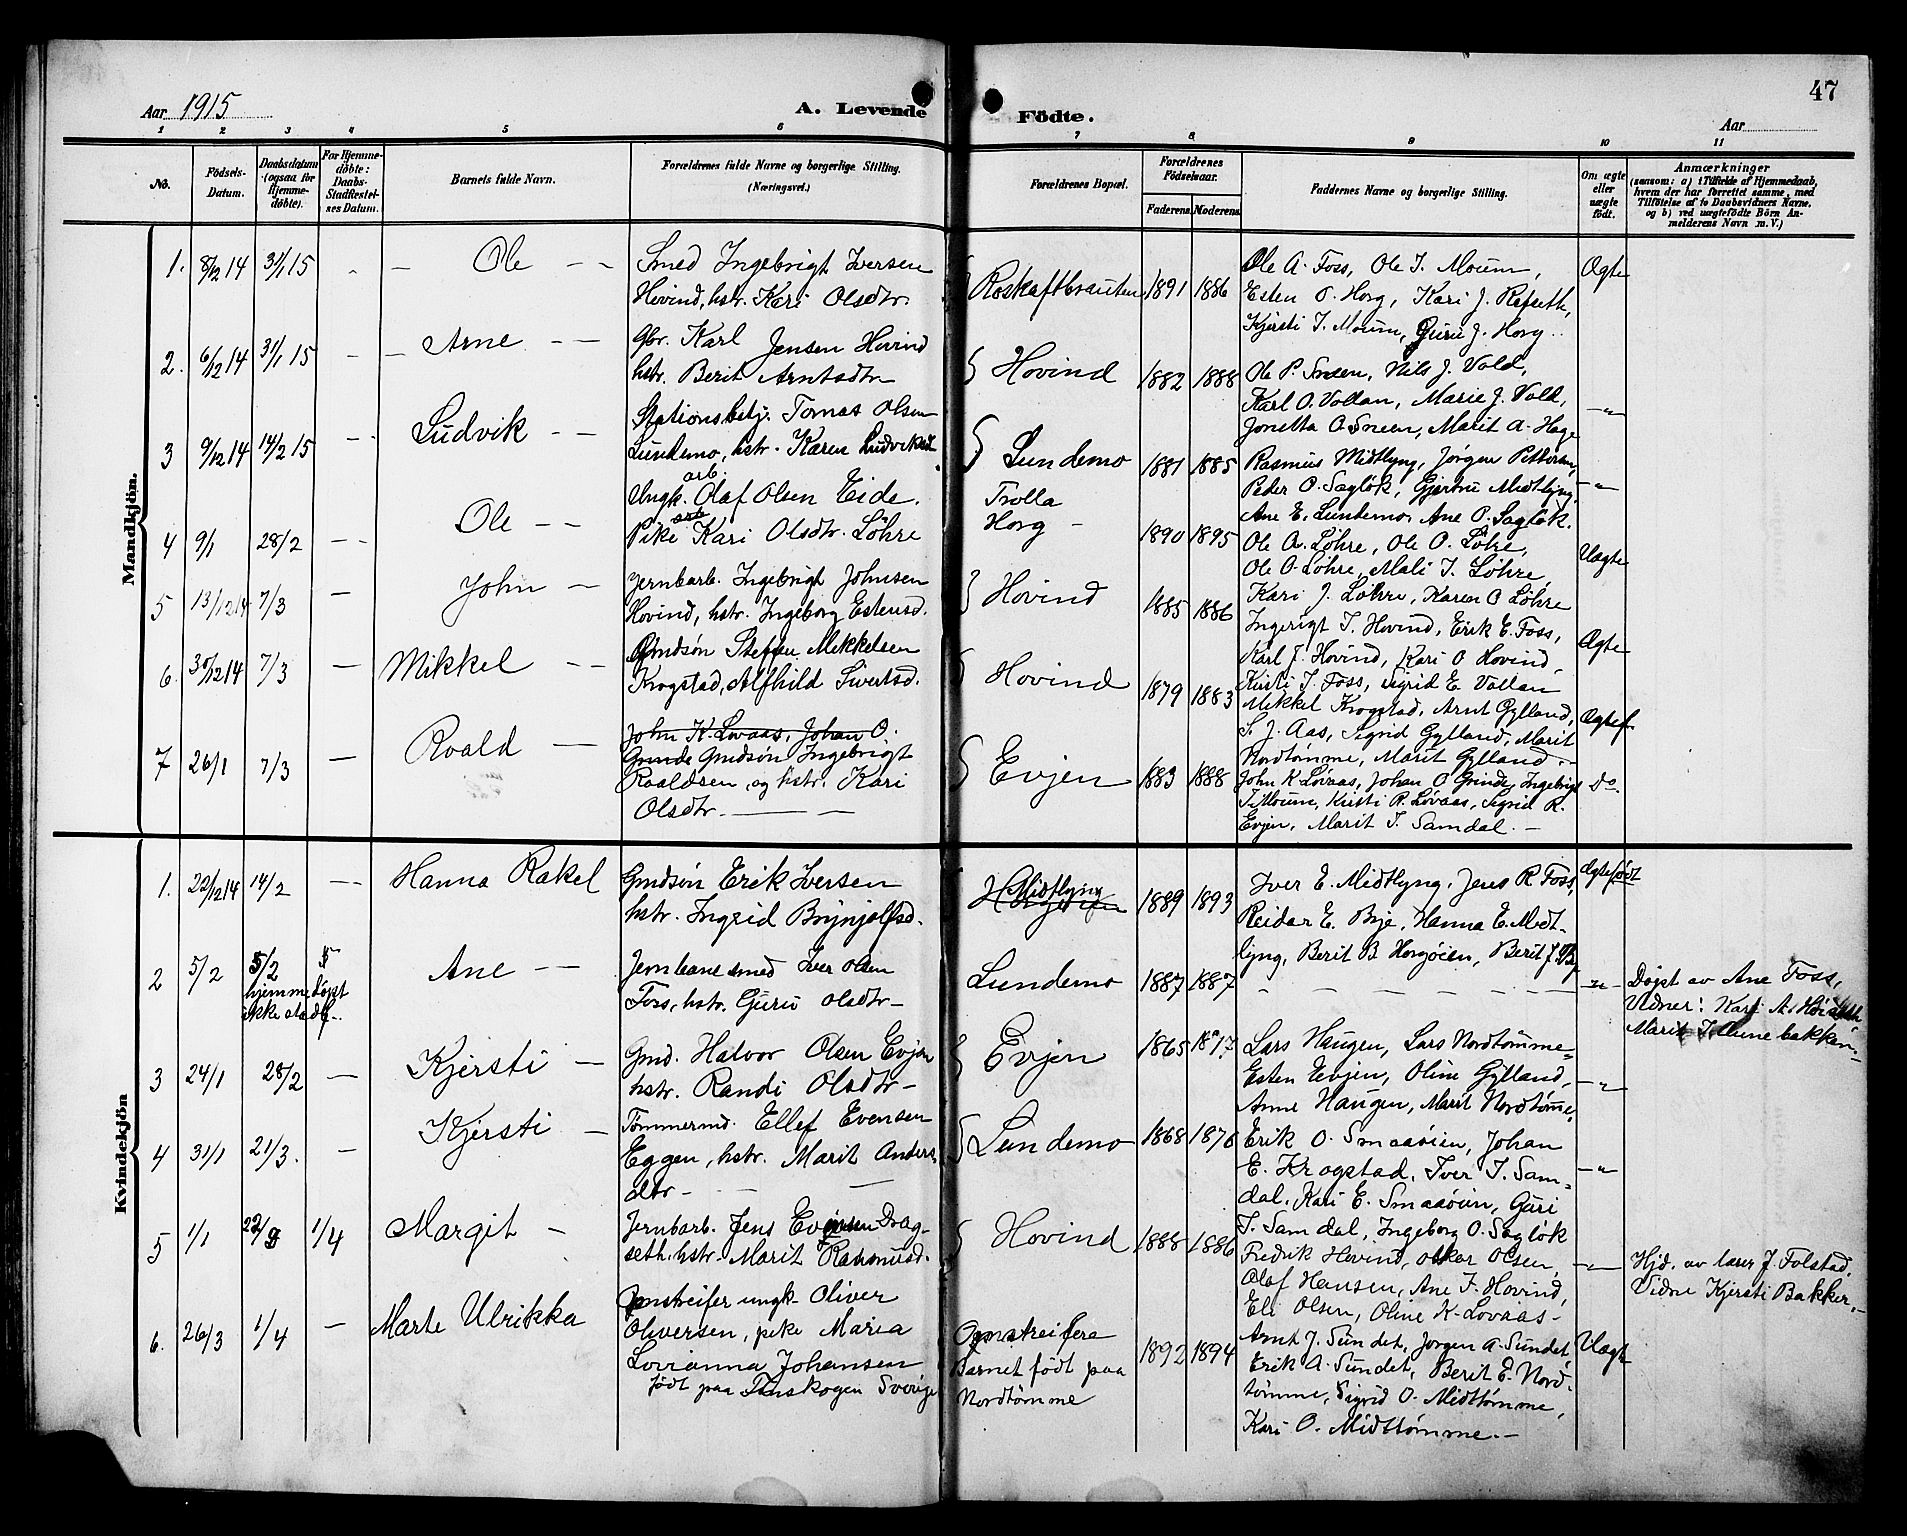 47
Aar 1915
A. Levende
Födte.
Aar
1 2 3 4 5 6 7 8 9 10 11
No.
Födsels-
Datum.
Daabsdatum
(ogsaa for
Hjemme-
döbte).
For Hjemme-
döbte:
Daabs-
Stadfæstel-
ses Datum.
Barnets fulde Navn.
Forældrenes fulde Navne og borgerlige Stilling.
(Næringsvei.)
Forældrenes Bopæl.
Forældrenes
Födselsaar.
Faderens. Moderens.
Faddernes Navne og borgerlige Stilling.
Om ægte
eller
uægte
født.
Anmærkninger
(saasom: a) i Tilfælde af Hjemmedaab,
hvem der har forrettet samme, med
Tilföielse af to Daabsvidners Navne,
og b) ved uægtefödte Börn An-
melderens Navn m. V.)
Mandkjön.
1. 8/12 14 31/1 15 - - Ole - -
Smed Ingebrigt Iversen
Hovind, hstr. Kari Olsdtr.
Røskaftbrauten 1891 1886
Ole A. Foss, Ole I. Moum,
Esten O. Horg, Kari J. Rafseth,
Kjersti I. Moum, Guru J. Horg.
Ægte
2. 6/12 14 31/1 15 - - Arne - -
Gbr. Karl Jensen Hovind
hstr. Berit Arntsdtr
Hovind 1882 1888
Ole P. Sneen, Nils J. Vold,
Karl O. Vollan, Marie J. Vold,
Jonetta O. Sneen, Marit A. Hage
-"-
3 9/12 14 14/2 15 - - Ludvik - -
Stationsbetj. Tomas Olsen
Lundemo, hstr. Karen Ludviksd.
Lundemo 1881 1885
Rasmus Midtlyng, Jørgen Pettersen,
Peder O. Sagløk, Gjertru Midtlyng,
Ane E. Lundemo, Ane P. Sagløk.
-"-
4 9/1 28/2 - - Ole - -
arb.
Ungk. Olaf Olsen Eide.
Pike Kari Olsdtr. Löhre
Trolla
Horg - 1890 1895
Ole A. Løhre, Ole O. Løhre,
Ole O. Løhre, Mali I. Løhre,
Kari J. Løhre, Karen O Løhre
Uægte
5 13/12 14 7/3 - John -
Jernbarb. Ingebrigt Johnsen
Hovind, hstr. Ingeborg Estensd.
Hovind 1885 1886
Ingerigt I. Hovind, Erik E. Foss,
Karl J. Hovind, Kari O Hovind,
Kirsti I. Foss, Sigrid E. Vollan
Ægte
6. 30/12 14 7/3 - Mikkel - -
Gmdsøn Steffen Mikkelsen
Krogstad, Alfhild Sivertsd.
Hovind 1879 1883
Mikkel Krogstad, Arnt Gylland,
S. J. Aas, Sigrid Gylland, Marit
Nordtømme, Marit Gylland. -
Ægtef.
7 26/1 7/3 - Roald -
John K. Lovaas, Johan O.
Grinde Gmdsøn Ingebrigt
Roaldsen, og hstr. Kari
Olsdtr. - -
Evjen 1883 1888
John K. Løvaas, Johan O Grinde, Ingebrigt
I. Moum, Kristi P. Løvaas, Sigrid R.
Evjen, Marit I. Samdal. -
Do.
Kvindekjön
1. 22/12 14 14/2 - Hanna Rakel
Gmdsøn Erik Iversen
hstr. Ingrid Brynjolfsd.
Midtlyng
1889 1893
Iver E. Midtlyng, Jens R Foss,
Reidar E. Bije, Hanna E. Midt-
lyng, Berit B Horgøien, Berit J
Ægtefødt
2 5/2 5/2 5
hjemmedøpt
ikke stadf.
Ane - -
Jernbanesmed Iver Olsen
Foss, hstr. Guru Olsdtr -
Lundemo 1887 1887
-"-
Døpt av Ane Foss,
Vidner: Kari A.
Marit I. Lunebakken. -
3 24/1 28/2 - Kjersti -
Gmd. Halvor Olsen Evjen
hstr. Randi Olsdtr -
Evjen 1865
Lars Haugen, Lars Nordtømme-
Esten Evjen, Oline Gylland,
Anne Haugen, Marit Nordtømme,
-"-
4 31/1 21/3. - Kjersti -
Tømmermd. Ellef Evensen
Eggen, hstr. Marit Anders-
dtr - - -
Lundemo 1868 1876
Erik O. Smaaøien, Johan
E. Krogstad, Iver I. Sam-
dal, Kari E. Smaaøien, Guri
I. Samdal, Ingeborg O. Sagløk
-"-
5 1/1 1/4 Margit -
Jernbarb. Jens Evensen Drag-
seth. hstr. Marit Rasmusd.
Hovind 1888 1886
Fredrik Hovind, Osker Olsen,
Olaf Hansen, Ane F. Hovind,
Eli Olsen, Oline K. Lovaas -
-"-
Hjd. av lærer J. Folstad,
Vidne Kjersti Bakken, -
6. 26/3 1/4 - Marte Ulrikka
Omstreifer ungk. Oliver
Oliversen, pike Maria
Lovianna Johansen
født paa Finskogen Sverige
Omstreifere
Barnet født paa
Nordtømme
1892 1894
Arnt J. Sundet, Jørgen A. Sundet,
Erik A. Sundet, Berit E. Nord-
tømme, Sigrid O. Midttømme,
Kari O. Midttømme. -
Uægte